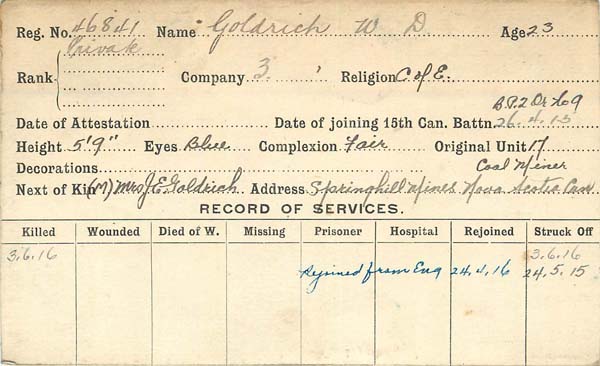 Reg. No. 46841 Name Goldrich W D. Age 23
Private
Rank Company 3. Religion C of E.
B.P.2 Or. No 9
Date of Attestation Date of joining 15th Can. Battn. 26.4.15
Height 5'9" Eyes Blue Complexion Fair Original Unit 17
Decorations Coal Miner
Next of Kin (M) Mrs J E Goldrich Address Springhill Mines Nova Scotia Can
RECORD OF SERVICES.
Killed Wounded Died of W. Missing Prisoner Hospital Rejoined Struck Off
3.6.16 3.6.16
Rejoined from Eng 24.4.16 24.5.15